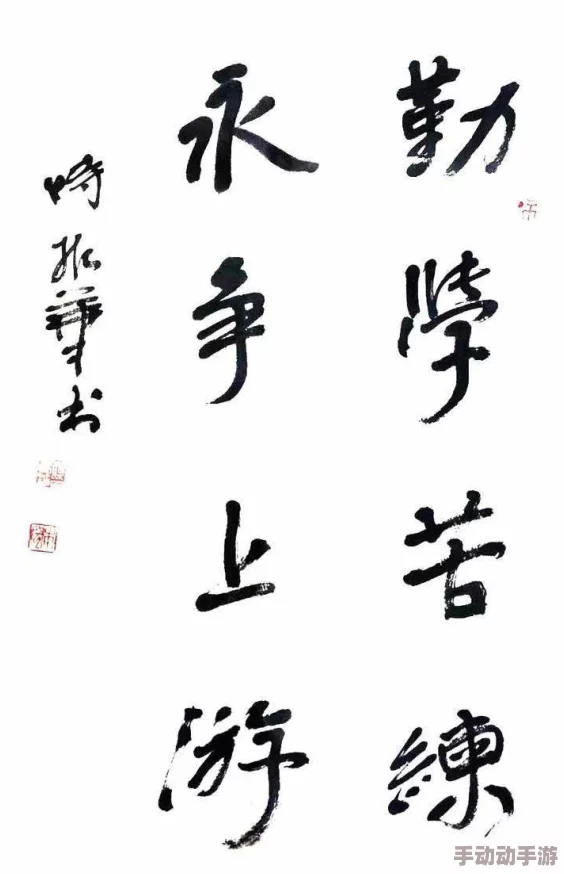 勤學苦練
永争上游
時振華书
手动动手游